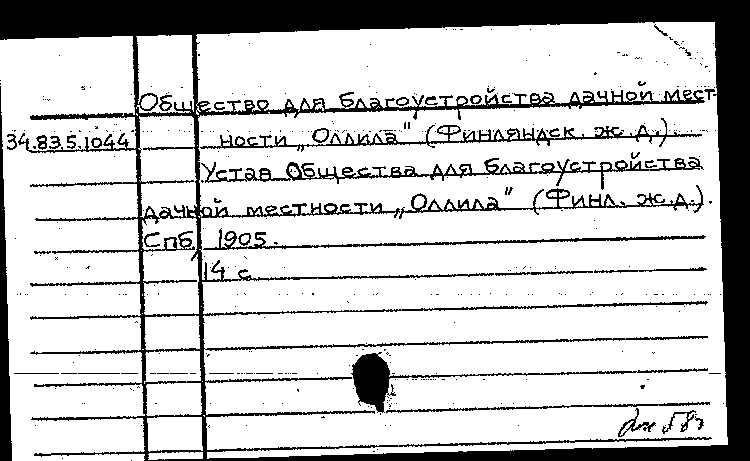 Общество для благоустройства дачной мест-
34.83.5.1044 ности „Оллила" (Финляндск. ж. д.).
Устав Общества для благоустройства
дачной местности „Оллила" (Финл. ж.д.).
Спб, 1905.
14 с.